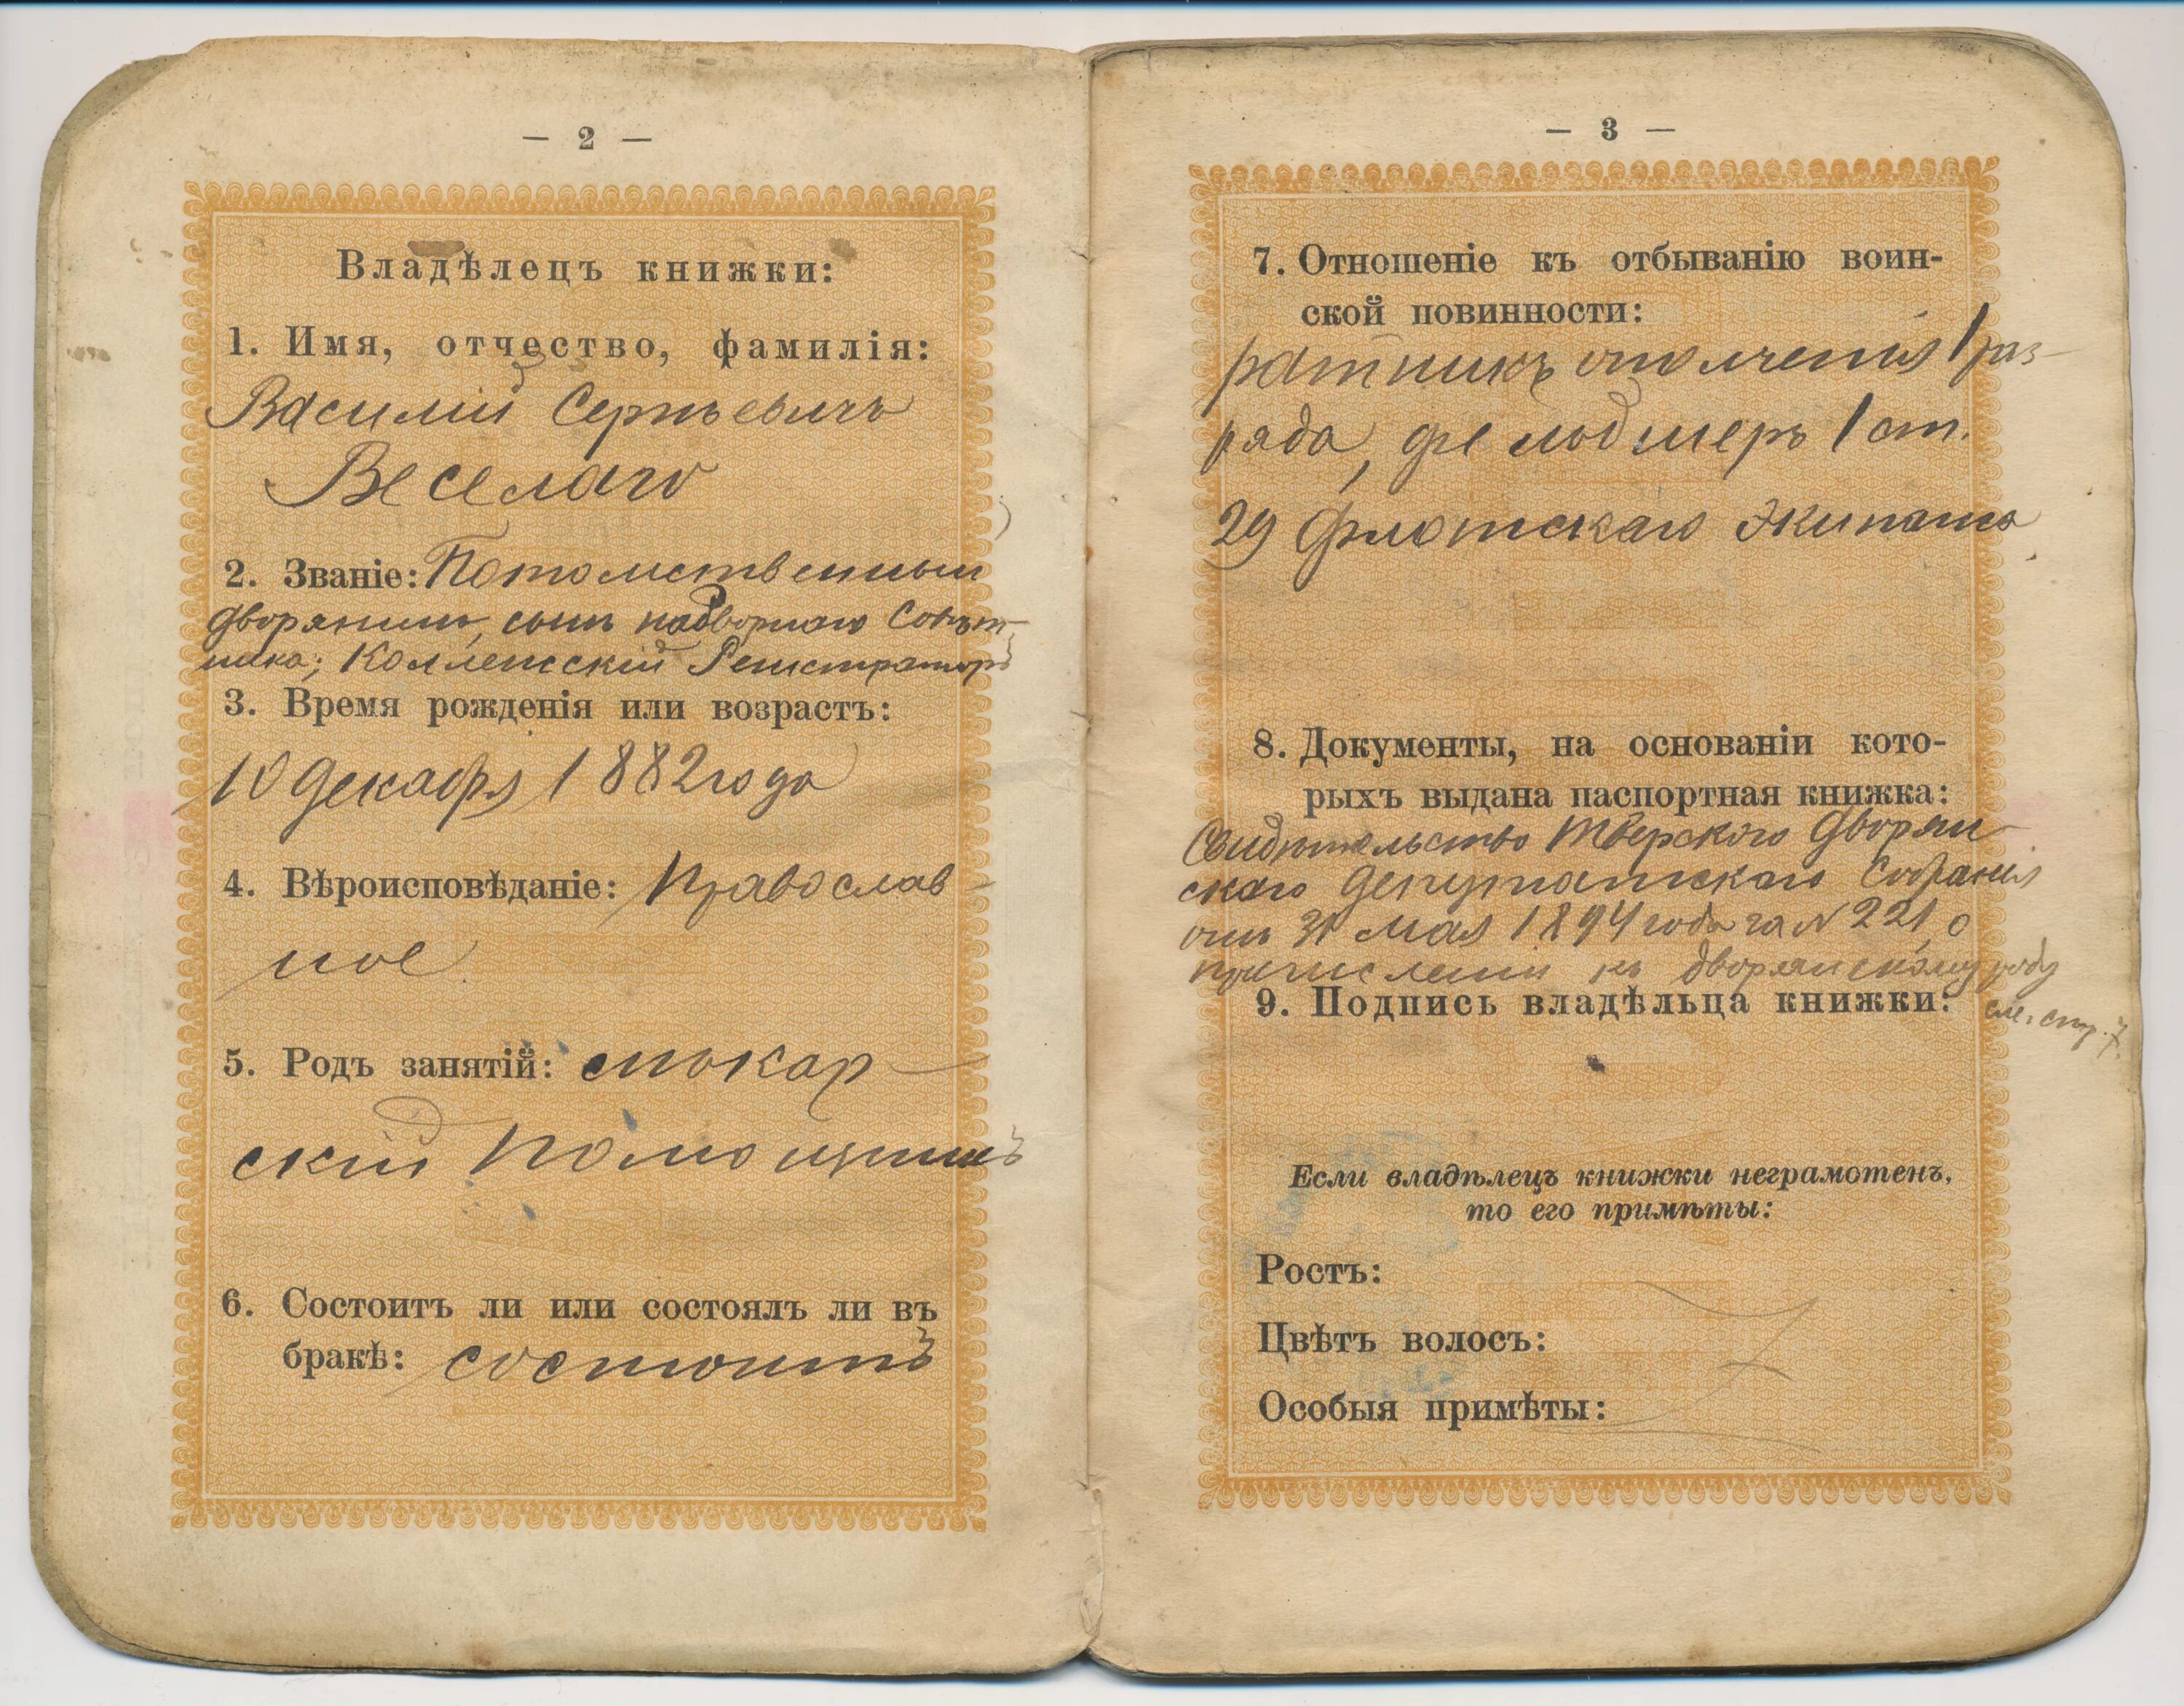 — 2 —
Владѣлецъ книжки:
1. Имя, отчество, фамилія:
Василій Сергѣевичъ
Веселаго
2. Званіе: Потомственный
дворянинъ, сынъ надворнаго Совѣт-
ника; Коллежскій Регистраторъ
3. Время рожденія или возрастъ:
10 декабря 1882 года
4. Вѣроисповѣданіе: Православ-
ное
5. Родъ занятій: лѣкар-
скій помощникъ
6. Состоитъ ли или состоялъ ли въ
бракѣ: состоитъ
— 3 —
7. Отношеніе къ отбыванію воин-
ской повинности:
ратникъ ополченія 1 раз-
ряда, фельдшеръ 1 ст.
29 флотскаго экипажа
8. Документы, на основаніи кото-
рыхъ выдана паспортная книжка:
Свидѣтельство Тверского Дворян-
скаго Депутатскаго Собранія
отъ 31 мая 1894 года за N 221, о
причисленіи къ дворянскому роду
9. Подпись владѣльца книжки:
см. стр. 7.
Если владѣлецъ книжки неграмотенъ,
то его примѣты:
Ростъ:
Цвѣтъ волосъ:
Особыя примѣты: